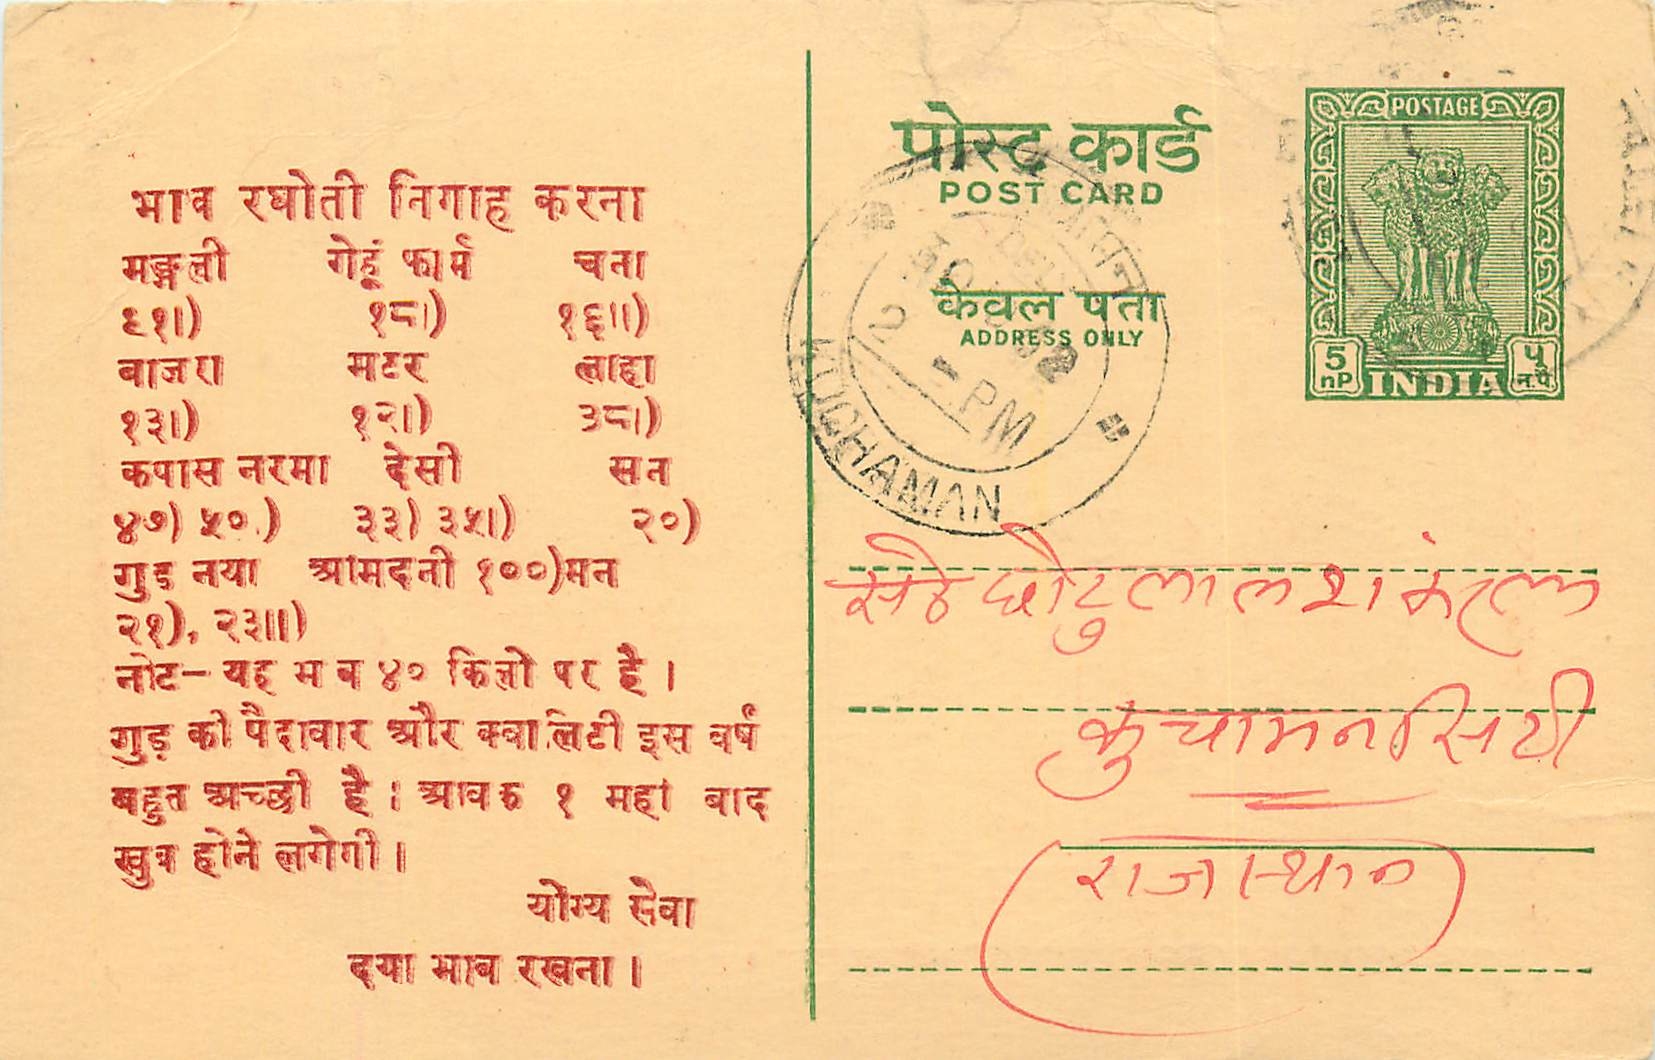 भाव रघोती निगाह करना
मङ्गली गेहूं फार्म चना
६१।) १८।) १६॥)
बाजरा मटर लाहा
१३।) १२।) ३८।)
कपास नरमा देसी सन
४७) ५०) ३३) ३५।) २०)
गुड़ नया आमदनी १००)मन
२१), २३॥।)
नोट– यह भाव ४० किलो पर है ।
गुड़ की पैदावार और क्वालिटी इस वर्ष
बहुत अच्छी है । आवक १ महा बाद
खुब होने लगेगी ।
योग्य सेवा
दया भाव रखना ।
पोस्ट कार्ड
POST CARD
केवल पता
ADDRESS ONLY
POSTAGE
5 nP INDIA ५ न.पै.
2 - PM
KUCHAMAN
सेठ छोटुलाल
कुचामन सिटी
(राजस्थान)